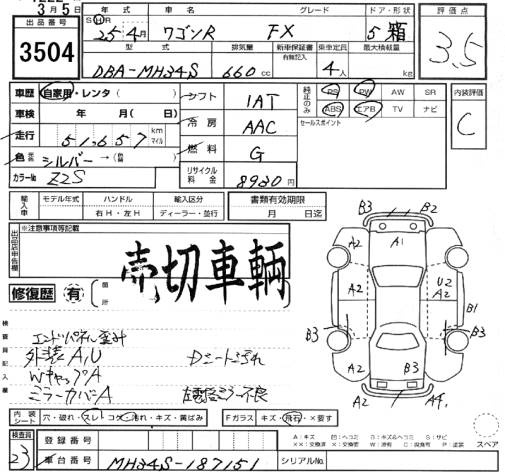 3月5日
出品番号 年式 車名 グレード ドア・形状 評価点
3504 SH 25年4月 ワゴンR FX 5箱 3.5
型式 排気量 新車保証書 有無記入 乗車定員 最大積載量
DBA-MH34S 660cc 4人 kg
車歴 自家用・レンタ( ) シフト 1AT 純正のみ PS PW AW SR 内装評価
車検 年 月( 日) 冷房 AAC ABS エアB TV ナビ C
走行 51,657 km マイル セールスポイント
色 シルバー→( ) 燃料 G
カラーNo Z2S リサイクル料金 8920円
輸入車 モデル年式 ハンドル 輸入区分 書類有効期限
右H・左H ディーラー・並行 月 日迄
出品店申告欄 ※注意事項等記載
売切車輌
修復歴 有 箇所
検査員記入欄
エンドパネル歪み
外装A,U Dシート汚れ
WキャップA
ミラーカバーA
B3 B2
A2 A1
A2 U2 A2 B1
B3 B3
A2 A2 B3
A2 A4
内装シート 穴・破れ・スレ・コゲ・汚れ・キズ・黄ばみ Fガラス キズ・飛石・×要す
検査員 23 登録番号
車台番号 MH34S-187151 シリアルNo.
A:キズ U:ヘコミ B:キズ&ヘコミ S:サビ
スペア